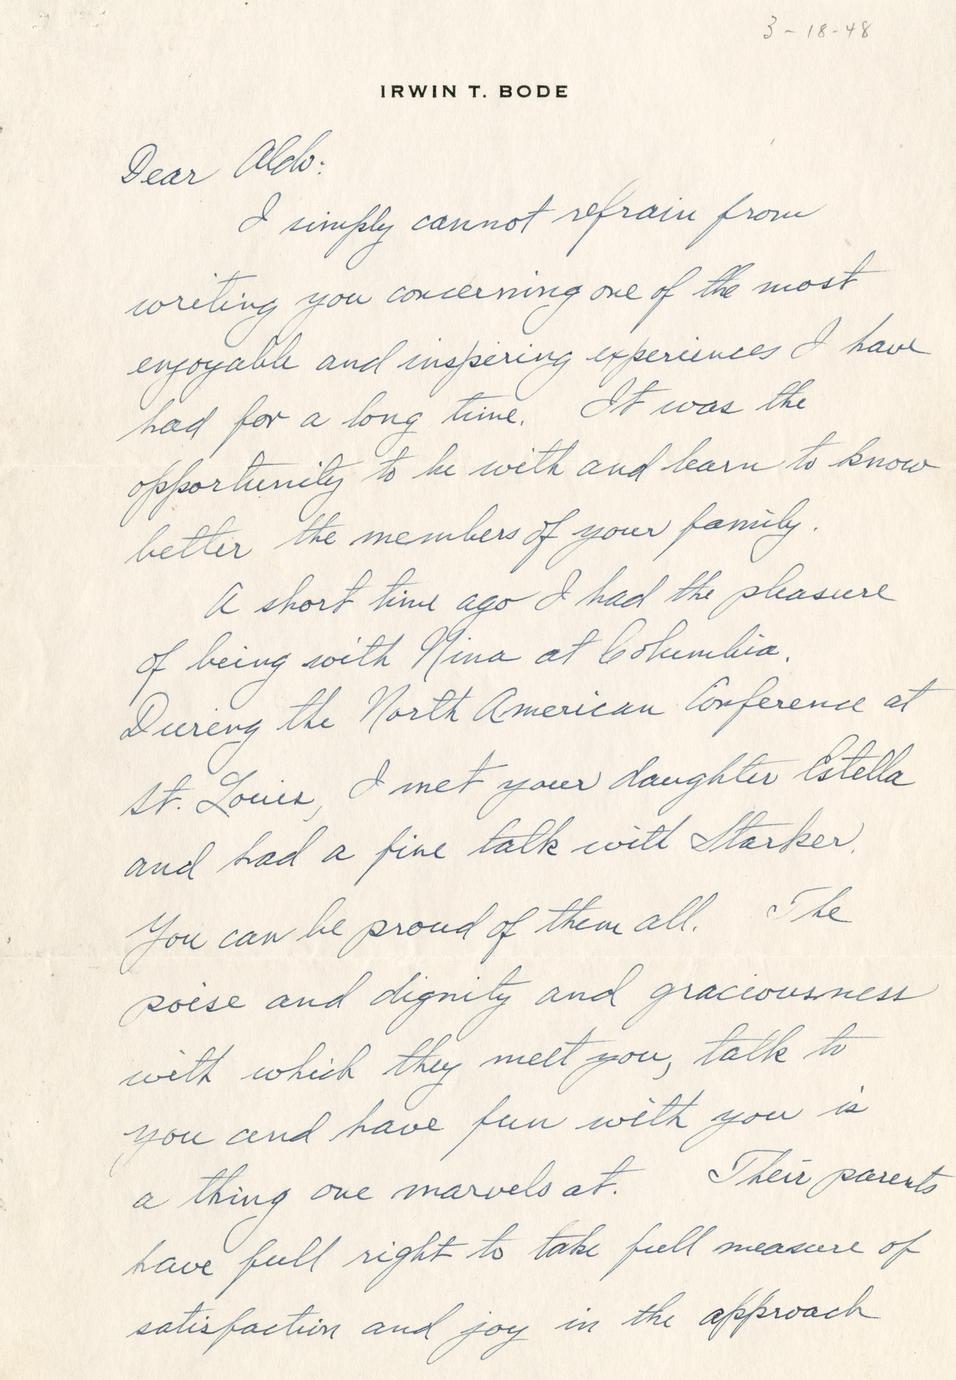 3-18-48
IRWIN T. BODE
Dear Aldo:
I simply cannot refrain from
writing you concerning one of the most
enjoyable and inspiring experiences I have
had for a long time. It was the
opportunity to be with and learn to know
better the members of your family.
A short time ago I had the pleasure
of being with Nina at Columbia.
During the North American Conference at
St. Louis, I met your daughter Estella
and had a fine talk with Starker.
You can be proud of them all. The
poise and dignity and graciousness
with which they meet you, talk to
you and have fun with you is
a thing one marvels at. Their parents
have full right to take full measure of
satisfaction and joy in the approach